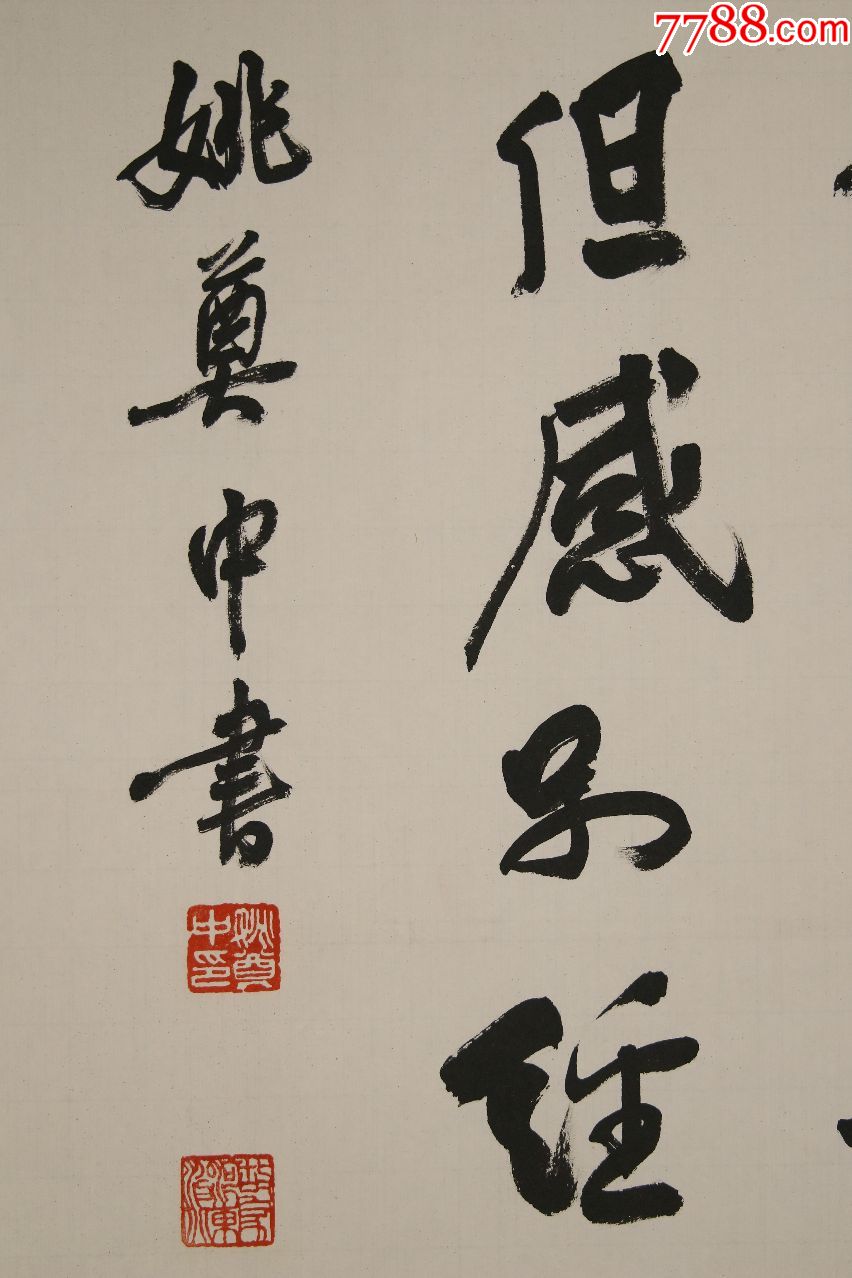 7788.com
但感别经
姚奠中书
姚奠中印